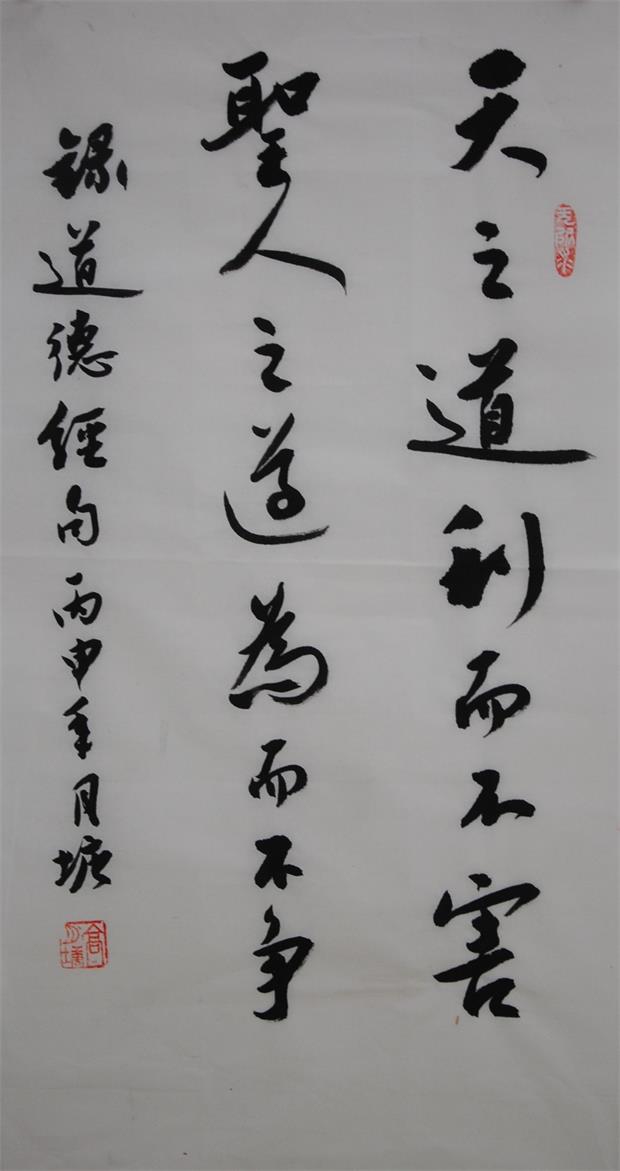 天之道利而不害
聖人之道為而不争
錄道德經句丙申年月塘